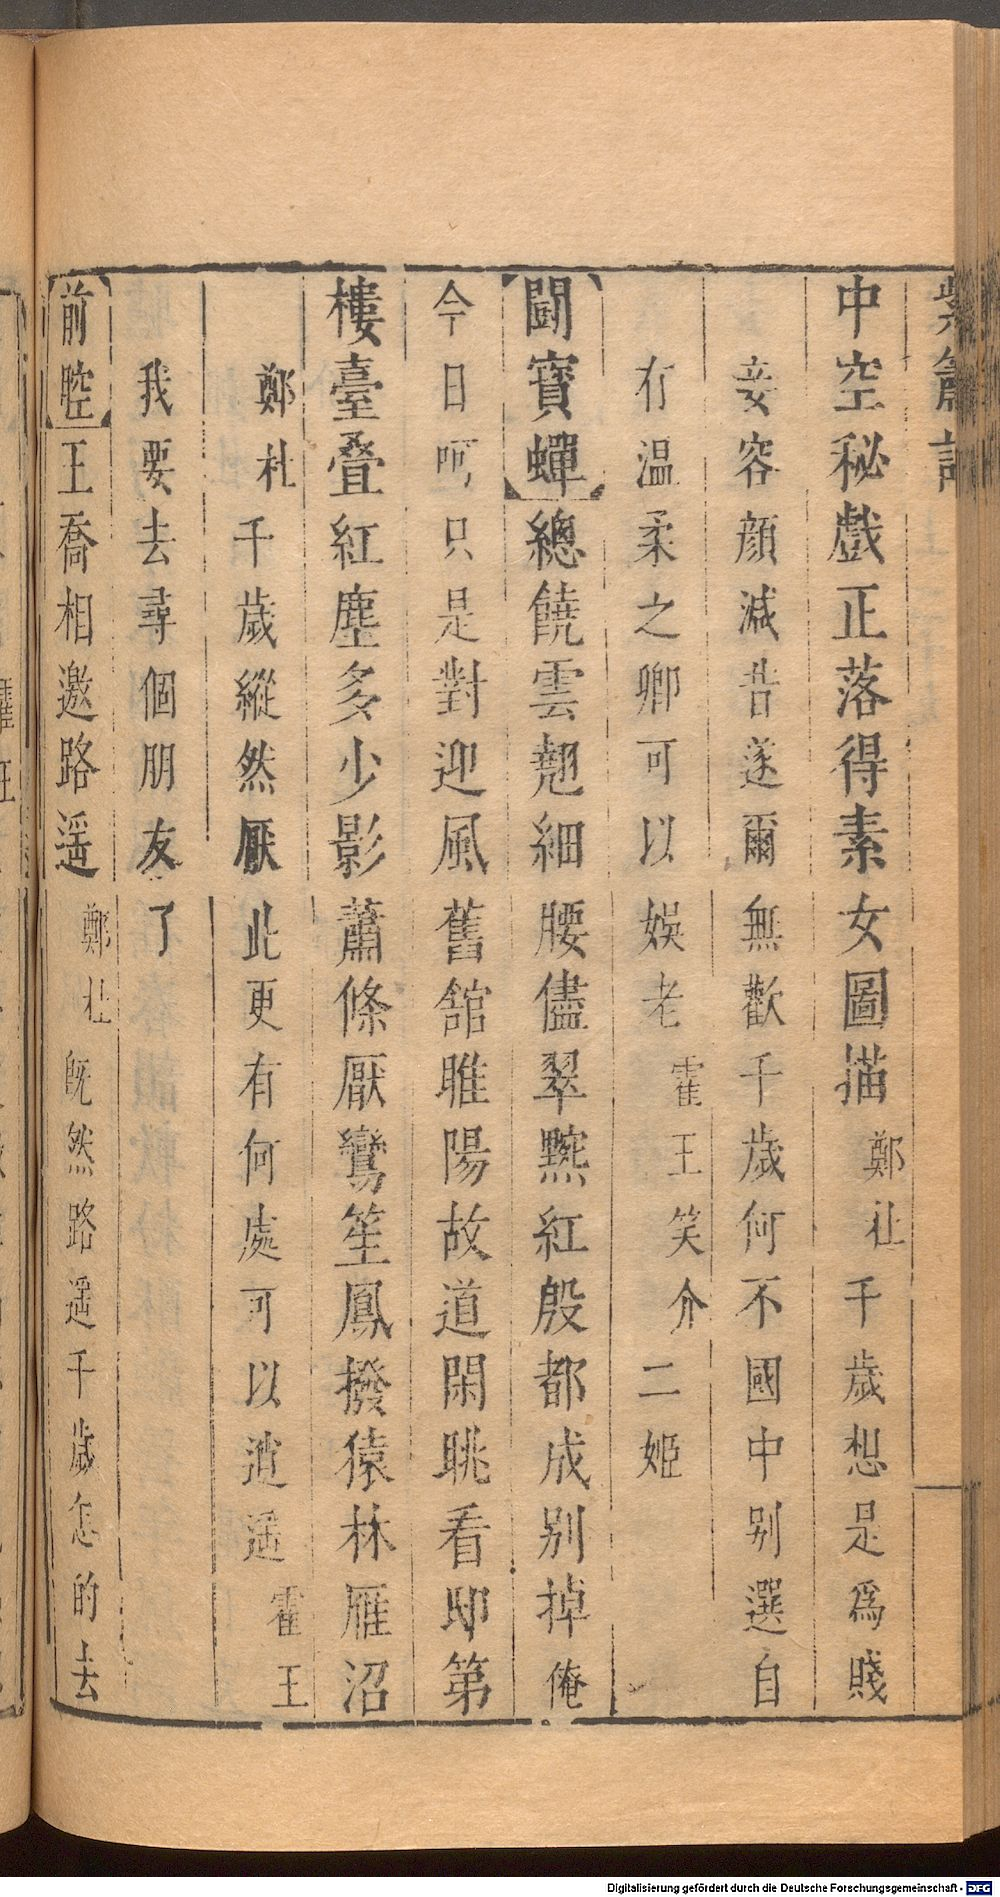 紫簫記
中空秘戲正落得素女圖描鄭杜千歲想是爲賤
妾容顏減昔遂爾無歡千歲何不國中别選自
有温柔之卿可以娛老霍王笑介二姬
鬪寶蟬總饒雲翹細腰儘翠䵝紅殷都成别掉俺
今日呵只是對迎風舊舘睢陽故道閑眺看邸第
樓臺叠紅塵多少影蕭條厭鸞笙鳳撥猿林雁沼
鄭杜千歲縱然厭此更有何處可以逍遥霍王
我要去尋個朋友了
前腔王喬相邀路遥鄭杜旣然路遥千歲怎的去
Digitalisierung gefördert durch die Deutsche Forschungsgemeinschaft - DFG